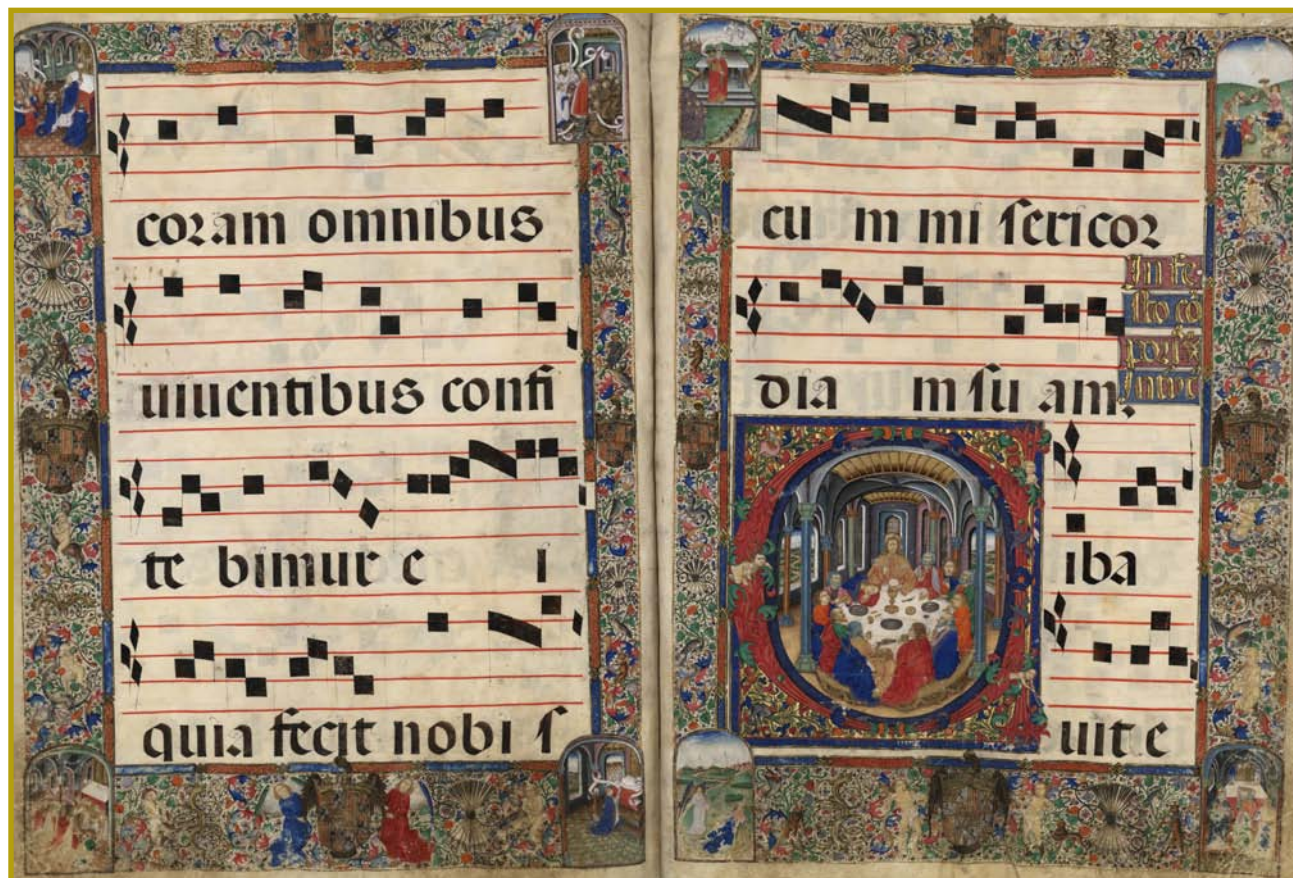 coram omnibus
uiuentibus confi
te bimur e i
quia fecit nobi s
cu m mi sericor
dia m su am.
In fe
sto co
poris
Introit
C iba
uit e